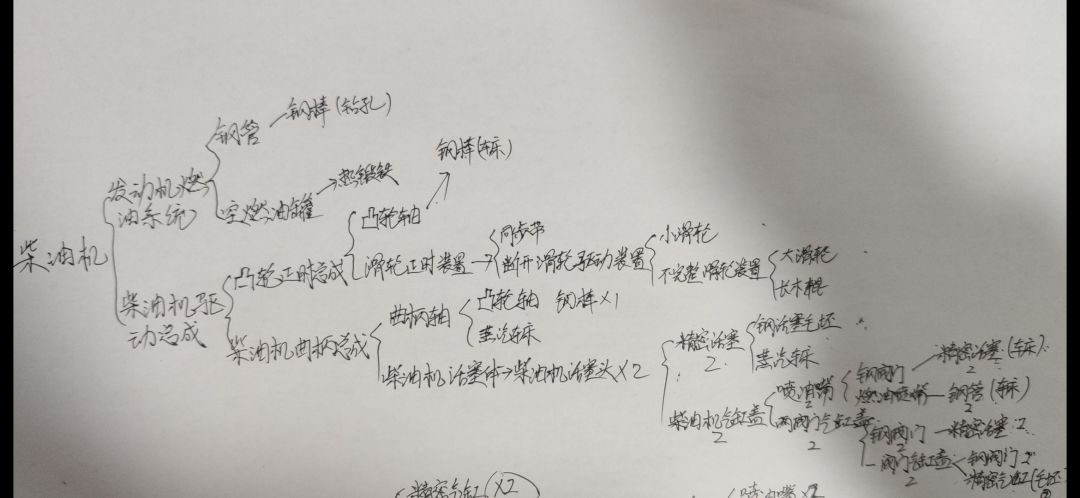 钢管 — 钢棒(钻孔)
发动机燃
油系统
空燃油罐 → 热锻铁
钢棒(车床)
柴油机
凸轮正时总成
凸轮轴
滑轮正时装置 →
同步带
断开滑轮驱动装置
小滑轮
不完整滑轮装置
大滑轮
长木棍
柴油机驱
动总成
柴油机曲柄总成
曲柄轴
凸轮轴 钢棒×1
蒸汽车床
柴油机活塞体→柴油机活塞头×2
精密活塞
2
钢活塞毛坯
蒸汽车床
柴油机气缸盖
2
喷油嘴
2
钢阀门 — 精密活塞(车床)
2
燃油喷嘴 — 钢管(车床)
2
两阀门气缸盖
2
钢阀门 — 精密活塞:2
阀门气缸盖
2
钢阀门 2
精密气缸(毛坯
精密气缸(×2)
喷油嘴×2